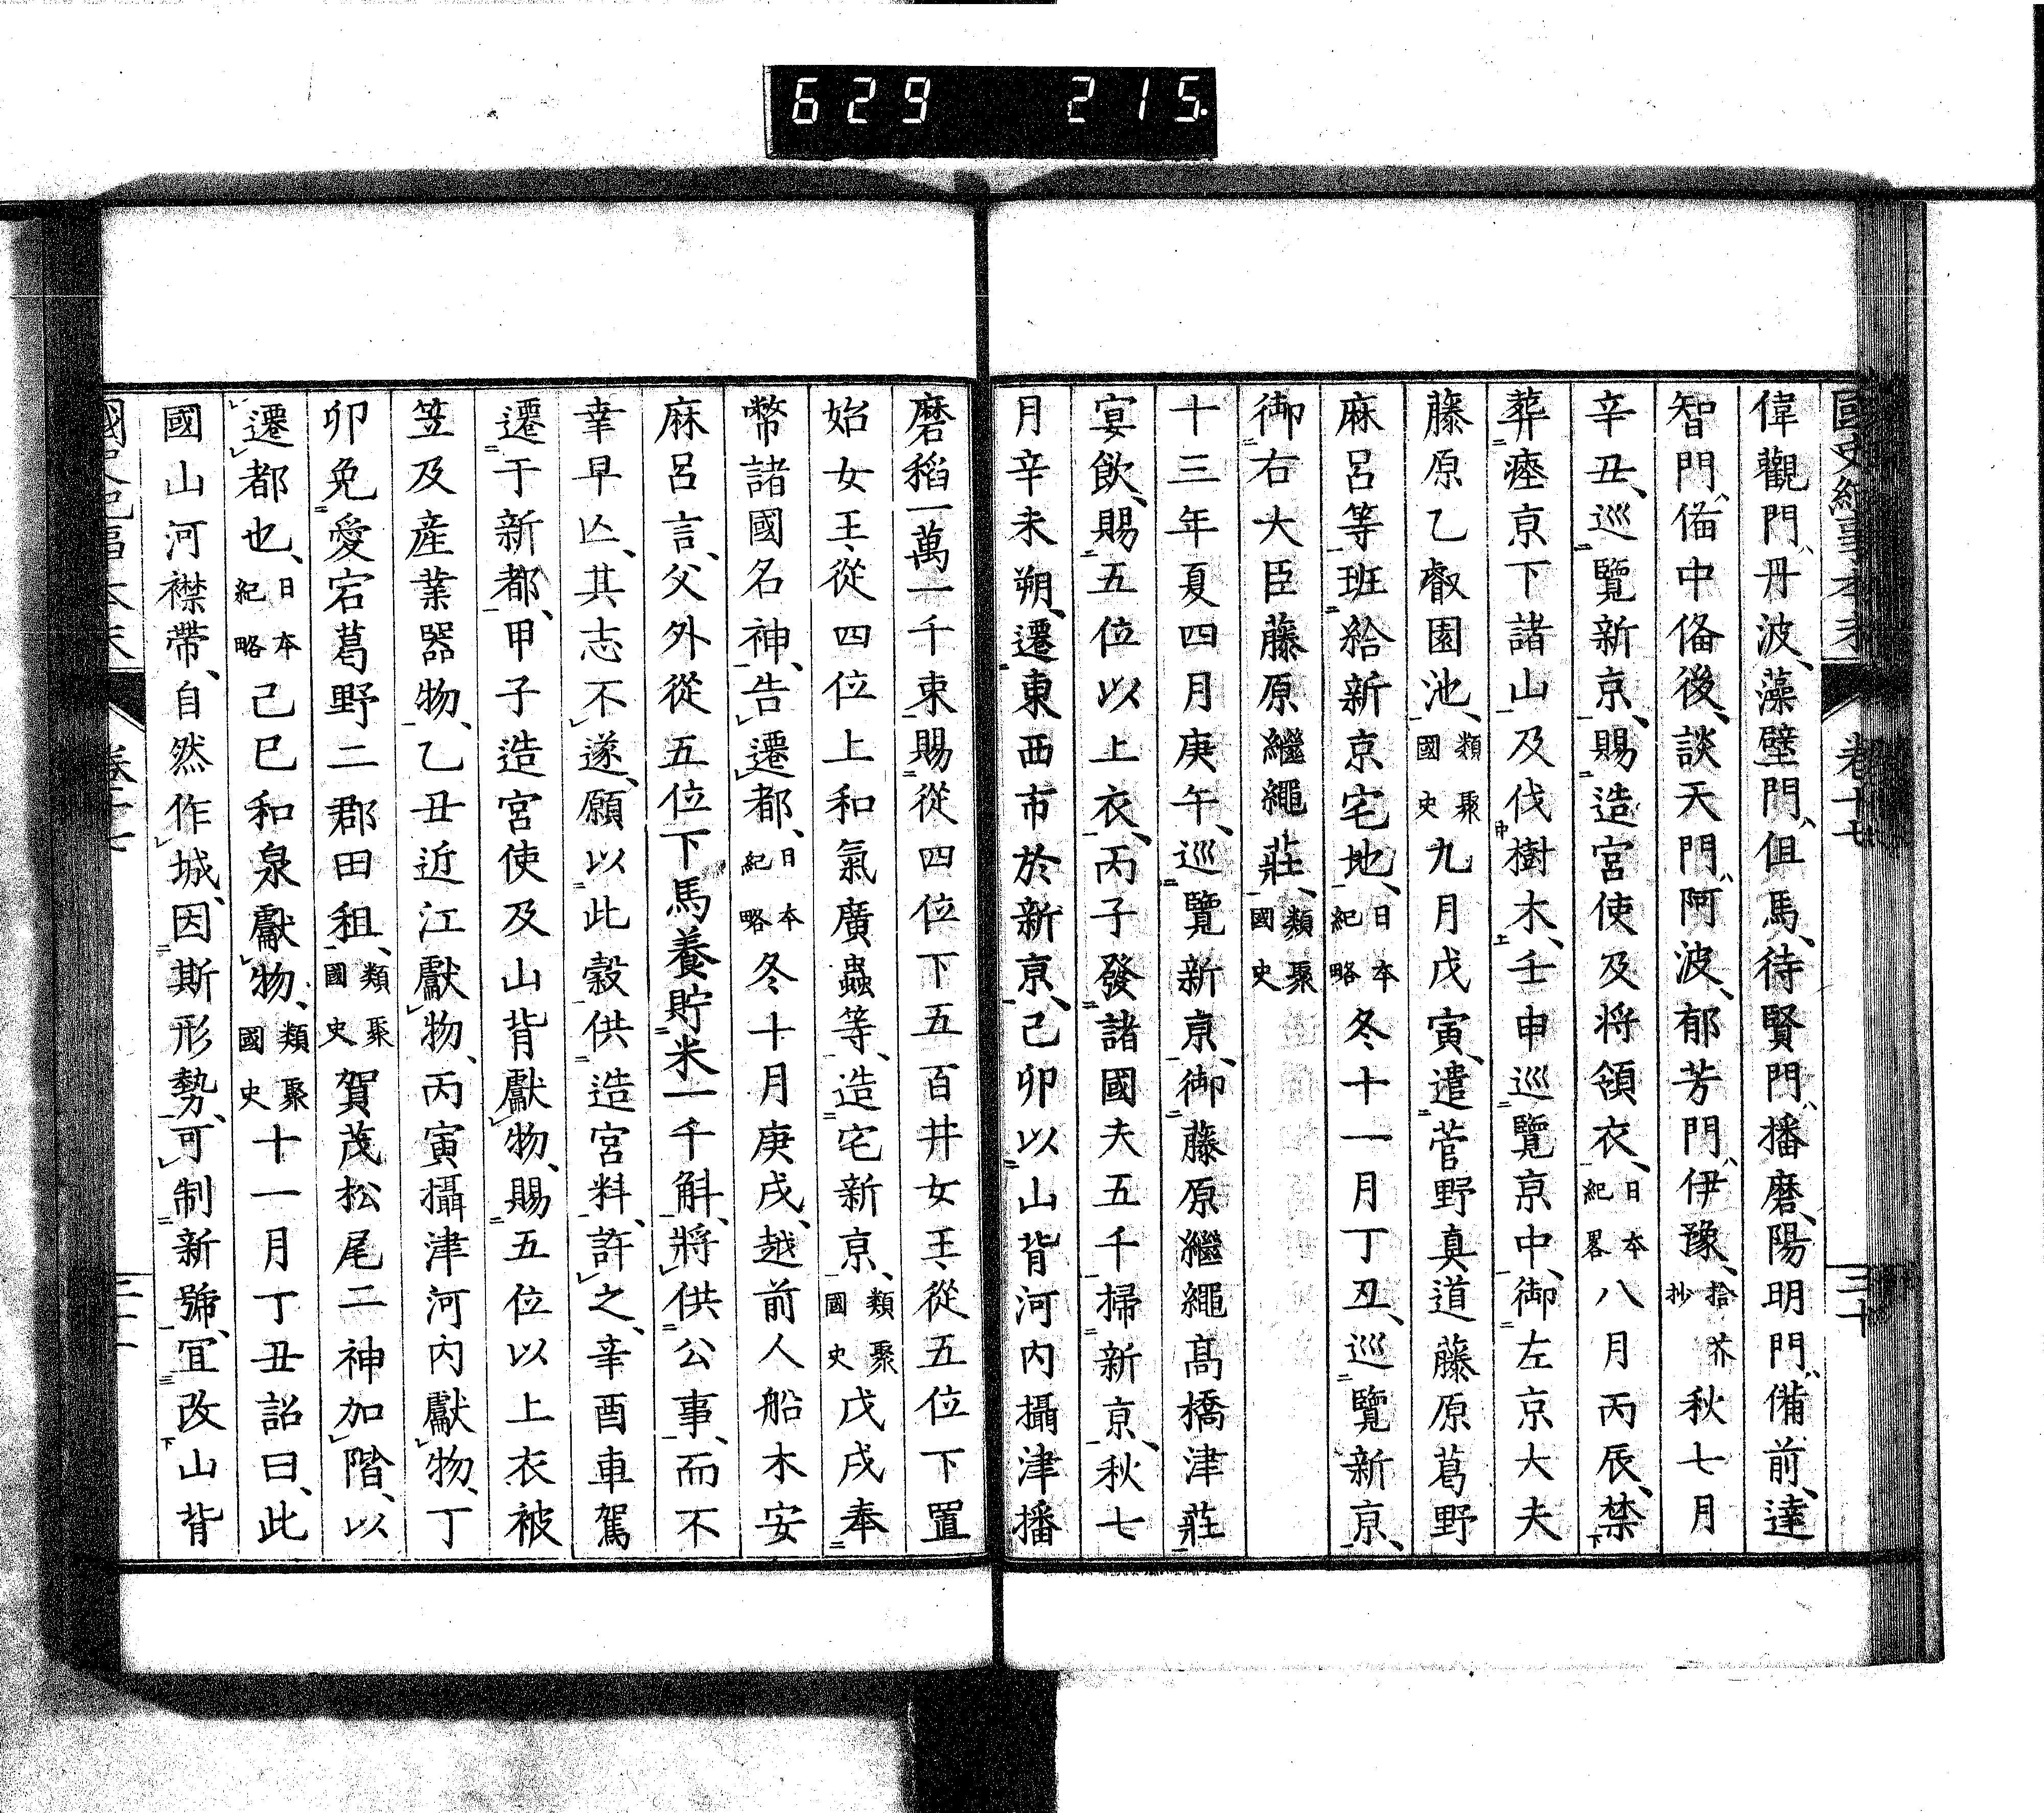 629 215.
國史紀事本末 卷十七 三十
偉觀門、丹波、藻壁門、但馬、待賢門、播磨、陽明門、備前、達
智門、備中備後、談天門、阿波、郁芳門、伊豫、拾芥抄 秋七月
辛丑、巡覽新京、賜造宮使及将領衣、日本紀畧 八月丙辰、禁
葬瘞京下諸山及伐樹木、壬申巡覽京中、御左京大夫
藤原乙叡園池、類聚國史 九月戊寅、遣菅野真道藤原葛野
麻呂等班給新京宅地、日本紀略 冬十一月丁丑、巡覽新京、
御右大臣藤原繼繩莊、類聚國史
十三年夏四月庚午、巡覽新京、御藤原繼繩高橋津莊
宴飲、賜五位以上衣、丙子發諸國夫五千掃新京、秋七
月辛未朔、遷東西市於新京、己卯以山背河内攝津播
磨稻一萬一千束賜從四位下五百井女王從五位下置
始女王從四位上和氣廣蟲等、造宅新京、類聚國史 戊戌奉
幣諸國名神、告遷都、日本紀略 冬十月庚戌、越前人船木安
麻呂言、父外從五位下馬養貯米一千斛、將供公事、而不
幸早亾、其志不遂、願以此穀供造宮料、許之、辛酉車駕
遷于新都、甲子造宮使及山背獻物、賜五位以上衣被
笠及産業器物、乙丑近江獻物、丙寅攝津河内獻物、丁
卯免愛宕葛野二郡田租、類聚國史 賀茂松尾二神加階、以
遷都也、日本紀略 己巳和泉獻物、類聚國史 十一月丁丑詔曰、此
國山河襟帶、自然作城、因斯形勢、可制新號、宜改山背